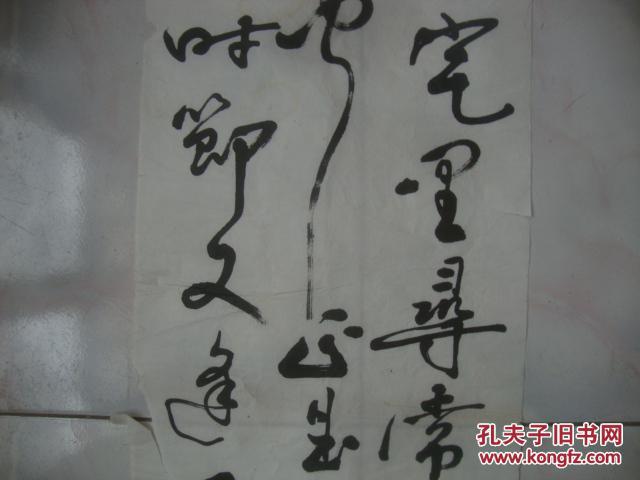 宅里尋常
聞正是
时節又逢
孔夫子旧书网
www.kongfz.com